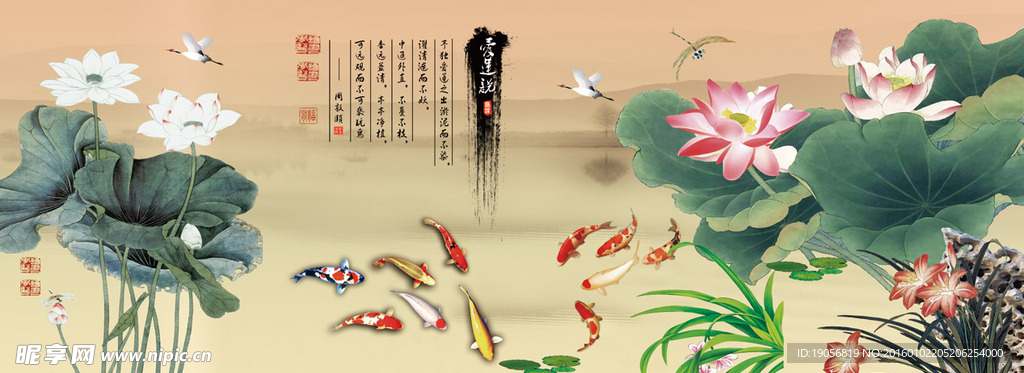 愛蓮説
予独愛蓮之出淤泥而不染，
濯清漣而不妖，
中通外直，不蔓不枝，
香远益清，亭亭净植，
可远观而不可亵玩焉
——周敦頤
昵享网 www.nipic.cn
ID:19056819 NO:20160102205206254000